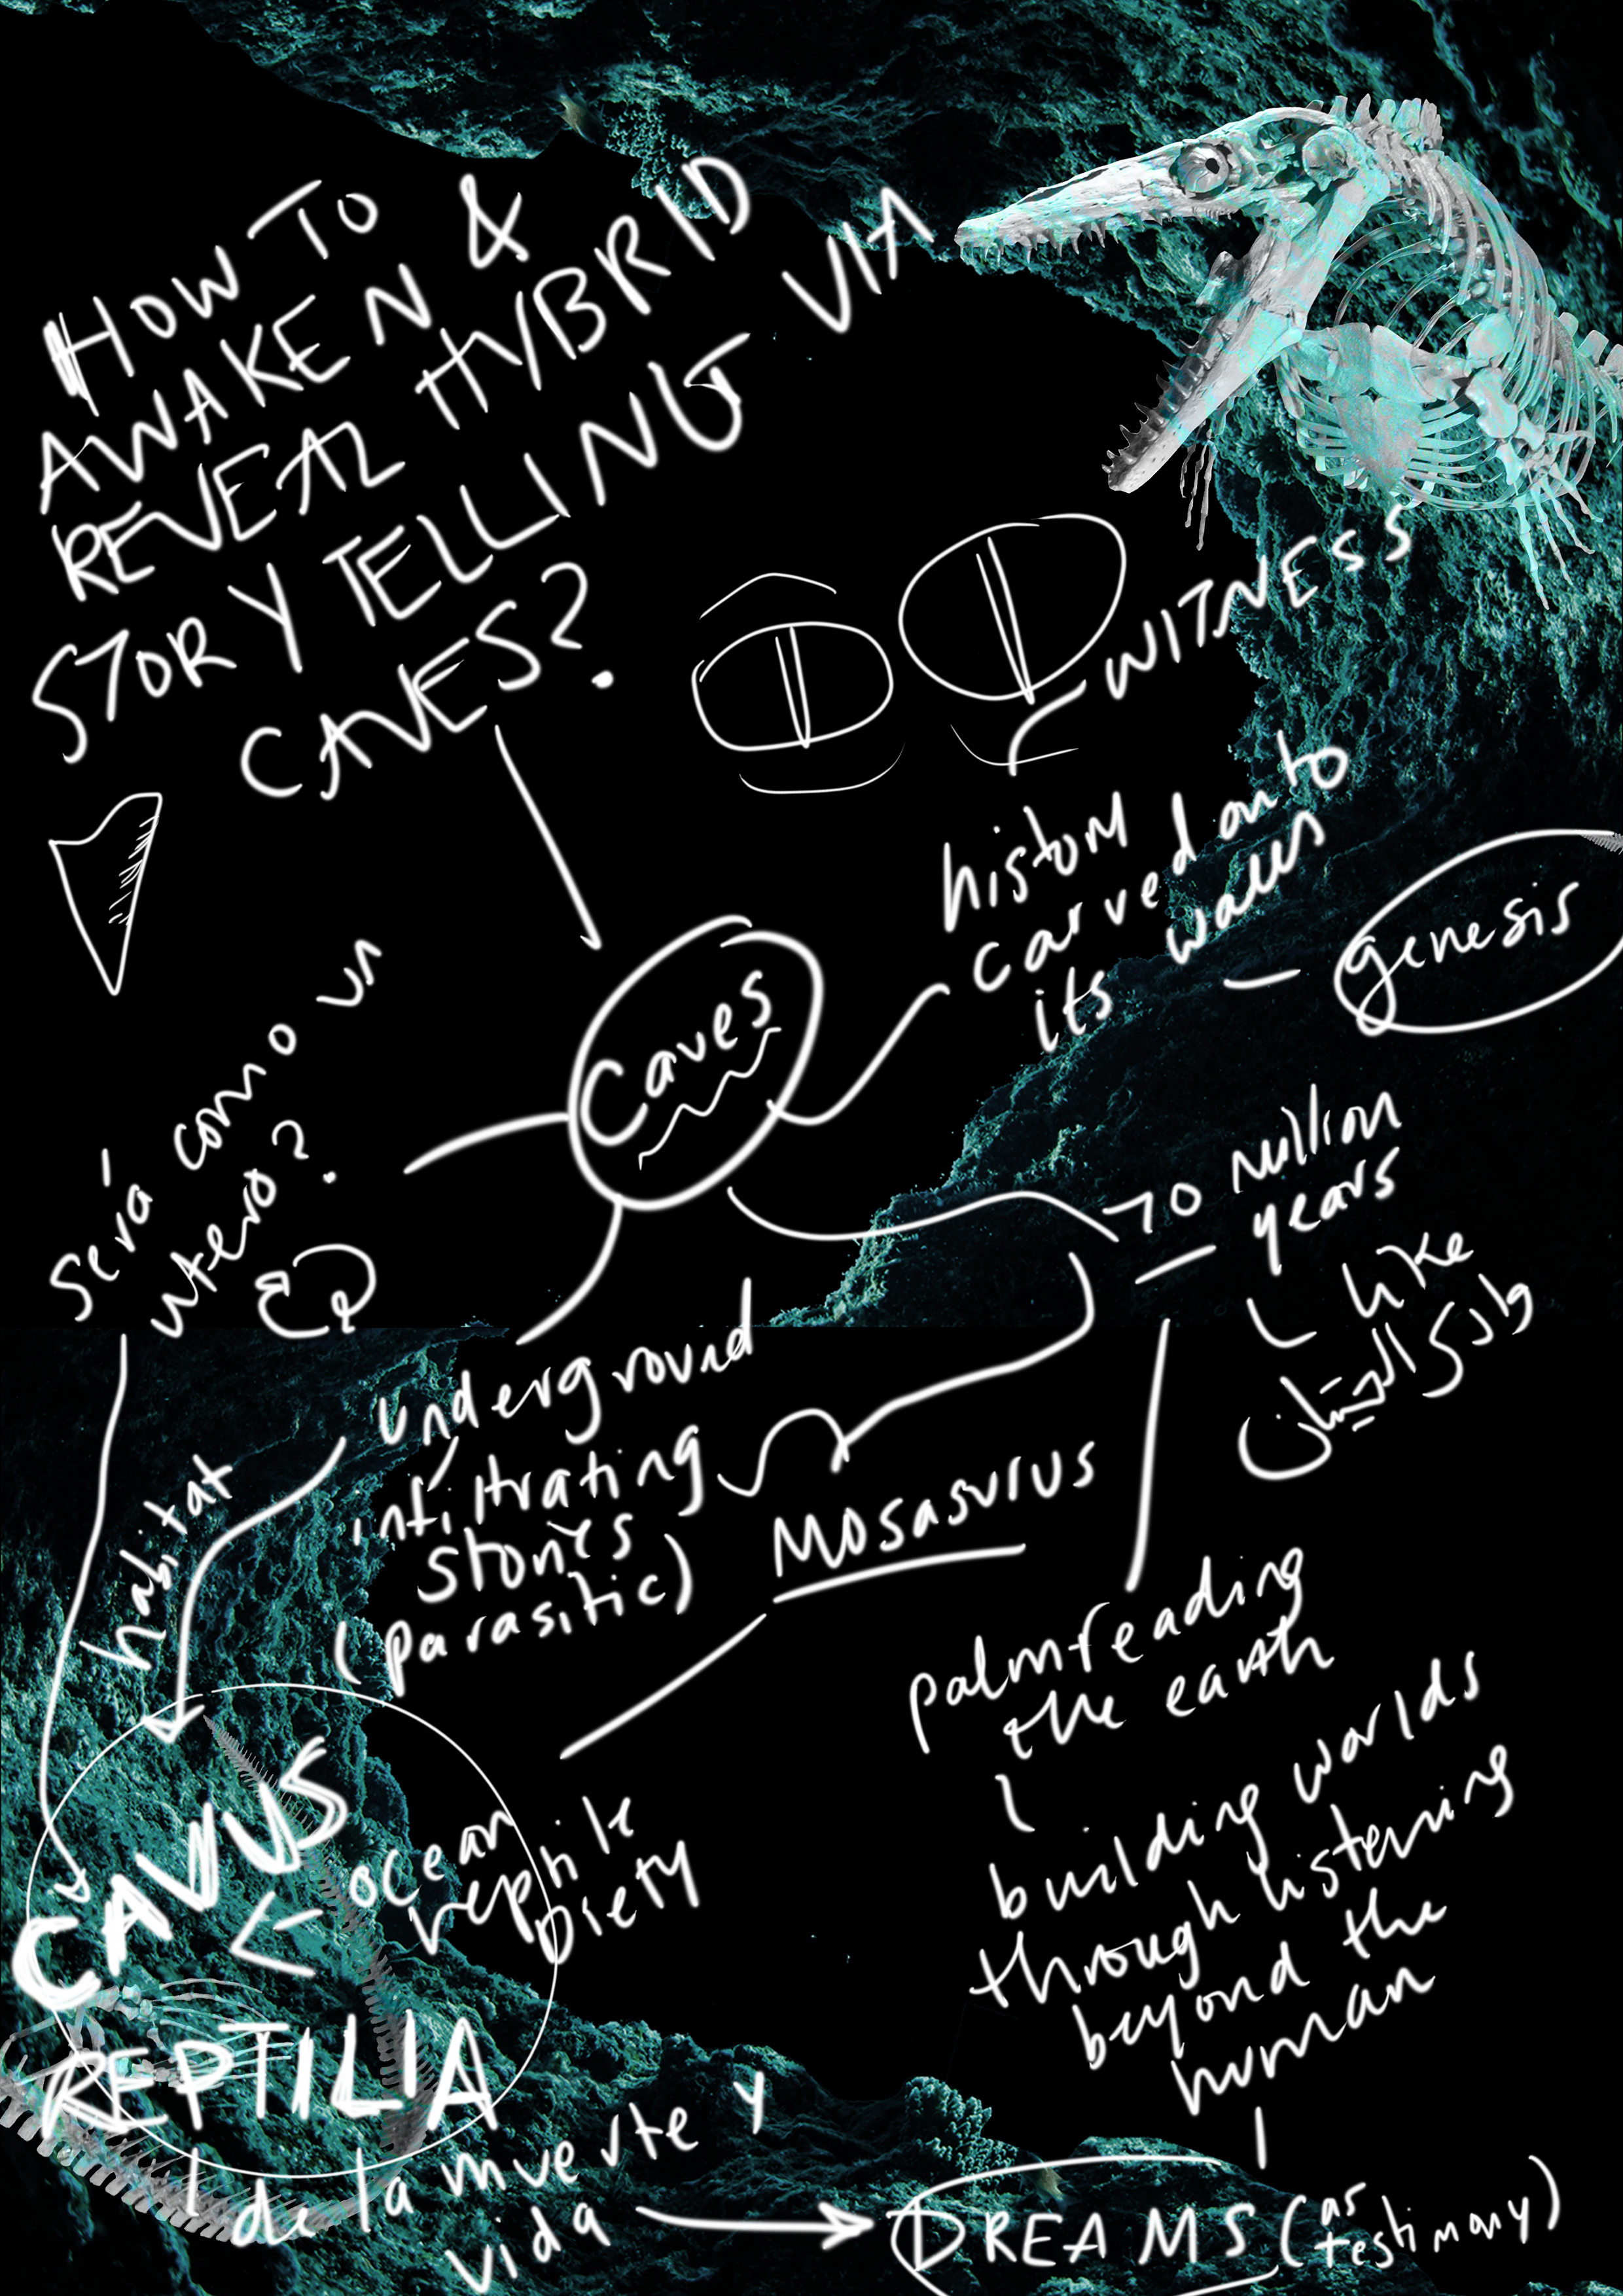 HOW TO
AWAKEN &
REVEAL HYBRID
STORYTELLING VIA
CAVES?
WITNESS
history
carved onto
its walls
genesis
Caves
Será como un
utero?
70 million
years
like
وادي الحيتان
underground
infiltrating
stories
(parasitic)
habitat
MOSASURUS
palm reading
the earth
building worlds
through listening
beyond the
human
ocean
reptile
Diety
CAVUS
REPTILIA
de la muerte y
vida
DREAMS (as
testimony)